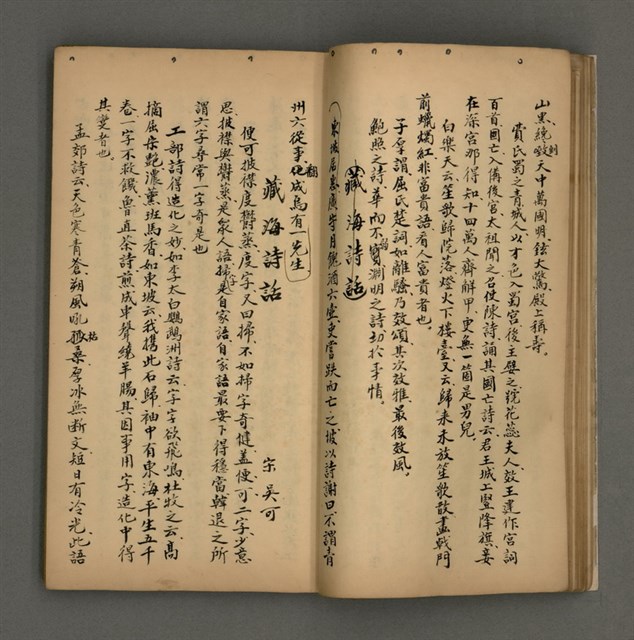 山黑繞天中萬國明鋐大驚殿上稱壽。
費氏蜀之青城人以才色入蜀宮後王嬖之號花蕊夫人效王建作宮詞
百首國亡入備後宮太祖聞之召使陳詩誦其國亡詩云君王城上豎降旗妾
在深宮那得知十四萬人齊解甲更無一箇是男兒。
白樂天云笙歌歸院落燈火下樓臺又云歸來未放笙歌散畫戟門
前蠟燭紅非富貴語看人富貴者也。
子厚謂屈氏楚詞如離騷乃效頌其次效雅最後效風。
鮑照之詩華而不實淵明之詩切於事情。
藏海詩話
東坡居惠廣守月饋酒六壺吏嘗跌而亡之坡以詩謝曰不謂青
州六從事翻成烏有一先生
藏海詩話
宋吳可
便可披襟度鬱蒸度字又曰掃不如掃字奇健蓋便可二字少意
思披襟與鬱蒸是衆人語掃是自家語自家語最要下得穩當韓退之所
謂六字尋常一字奇是也
工部詩得造化之妙如李太白鸚鵡洲詩云字字欲飛鳴杜牧之云高
摘屈宋艷濃薰班馬香如東坡云我携此石歸袖中有東海平生五千
卷一字不救饑魯直茶詩煎成車聲繞羊腸其因事用字造化中得
其變者也
孟郊詩云天色寒青蒼朔風吼枯桑厚冰無斷文短日有冷光此語